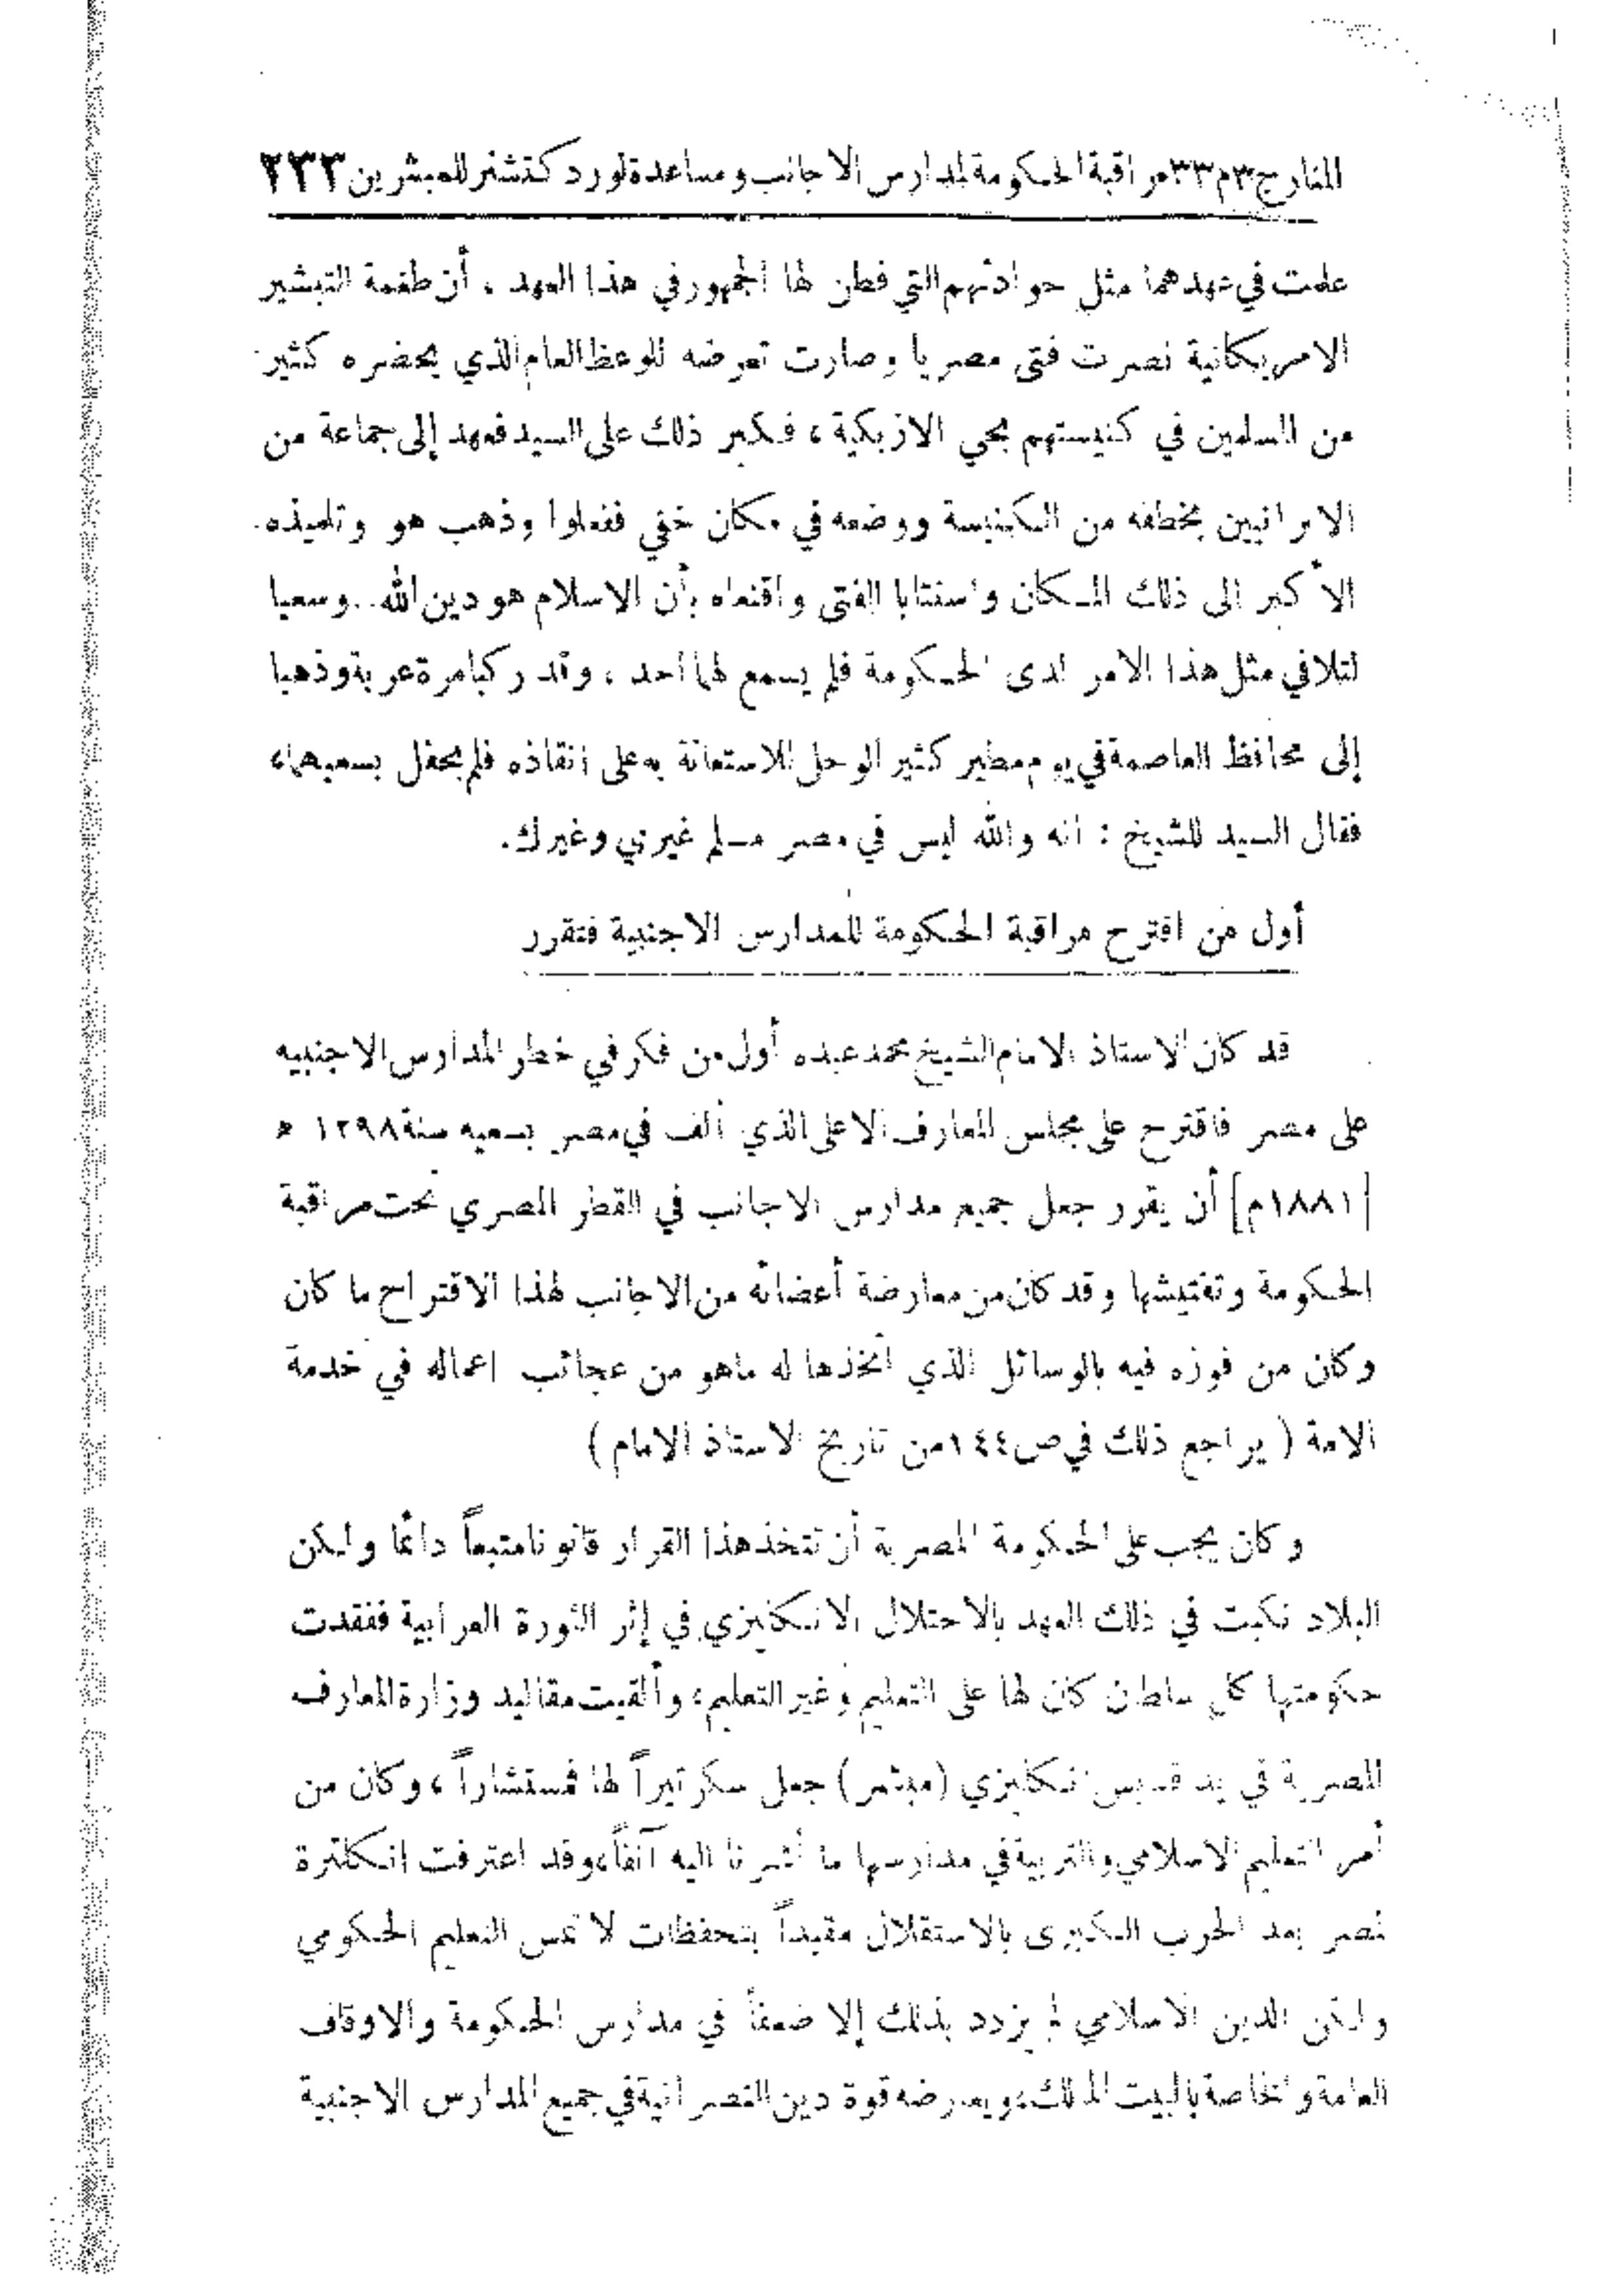 المنار ج٣ م٣٣ مراقبة الحكومة لمدارس الاجانب ومساعدة لورد كتشنر للمبشرين ٢٣٣
علمت في عهدهما مثل حوادثهم التي فطن لها الجمهور في هذا العهد ، أن طغمة التبشير
الامريكانية نصرت فتى مصريا وصارت تعرضه للوعظ العام الذي يحضره كثير
من المسلمين في كنيستهم بحي الازبكية ، فكبر ذلك على السيد فعهد إلى جماعة من
الايرانيين بخطفه من الكنيسة ووضعه في مكان خفي ففعلوا وذهب هو وتلميذه
الأكبر الى ذلك المكان واستتابا الفتى واقنعاه بأن الاسلام هو دين الله . وسعيا
لتلافي مثل هذا الامر لدى الحكومة فلم يسمع لهما أحد ، وقد ركبا مرة عربة وذهبا
إلى محافظ العاصمة في يوم مطير كثير الوحل للاستعانة به على انقاذه فلم يحفل بسعيهما ،
فقال السيد للشيخ : انه والله ليس في مصر مسلم غيري وغيرك .
أول من اقترح مراقبة الحكومة للمدارس الاجنبية فتقرر
قد كان الاستاذ الامام الشيخ محمد عبده أول من فكر في خطر المدارس الاجنبيه
على مصر فاقترح على مجلس المعارف الاعلى الذي ألف في مصر بسعيه سنة ١٢٩٨ ه
[١٨٨١م] أن يقرر جعل جميع مدارس الاجانب في القطر المصري تحت مراقبة
الحكومة وتفتيشها وقد كان من معارضة أعضائه من الاجانب لهذا الاقتراح ما كان
وكان من فوزه فيه بالوسائل الذي اتخذها له ماهو من عجائب اعماله في خدمة
الامة ( يراجع ذلك في ص ١٤٤ من تاريخ الاستاذ الامام )
وكان يجب على الحكومة المصرية أن تتخذ هذا القرار قانونا متبعاً دائما ولكن
البلاد نكبت في ذلك العهد بالاحتلال الانكليزي في إثر الثورة العرابية ففقدت
حكومتها كل سلطان كان لها على التعليم وغير التعليم ، وألقيت مقاليد وزارة المعارف
المصرية في يد قسيس انكليزي (مبشر) جعل سكرتيراً لها فمستشاراً ، وكان من
أمر التعليم الاسلامي والتربية في مدارسها ما أشرنا اليه آنفاً ، وقد اعترفت انكلترة
لمصر بعد الحرب الكبرى بالاستقلال مقيداً بتحفظات لا تمس التعليم الحكومي
ولكن الدين الاسلامي لم يزدد بذلك إلا ضعفاً في مدارس الحكومة والاوقاف
العامة والخاصة بالبيت المالك ، ويعارضه قوة دين النصرانية في جميع المدارس الاجنبية